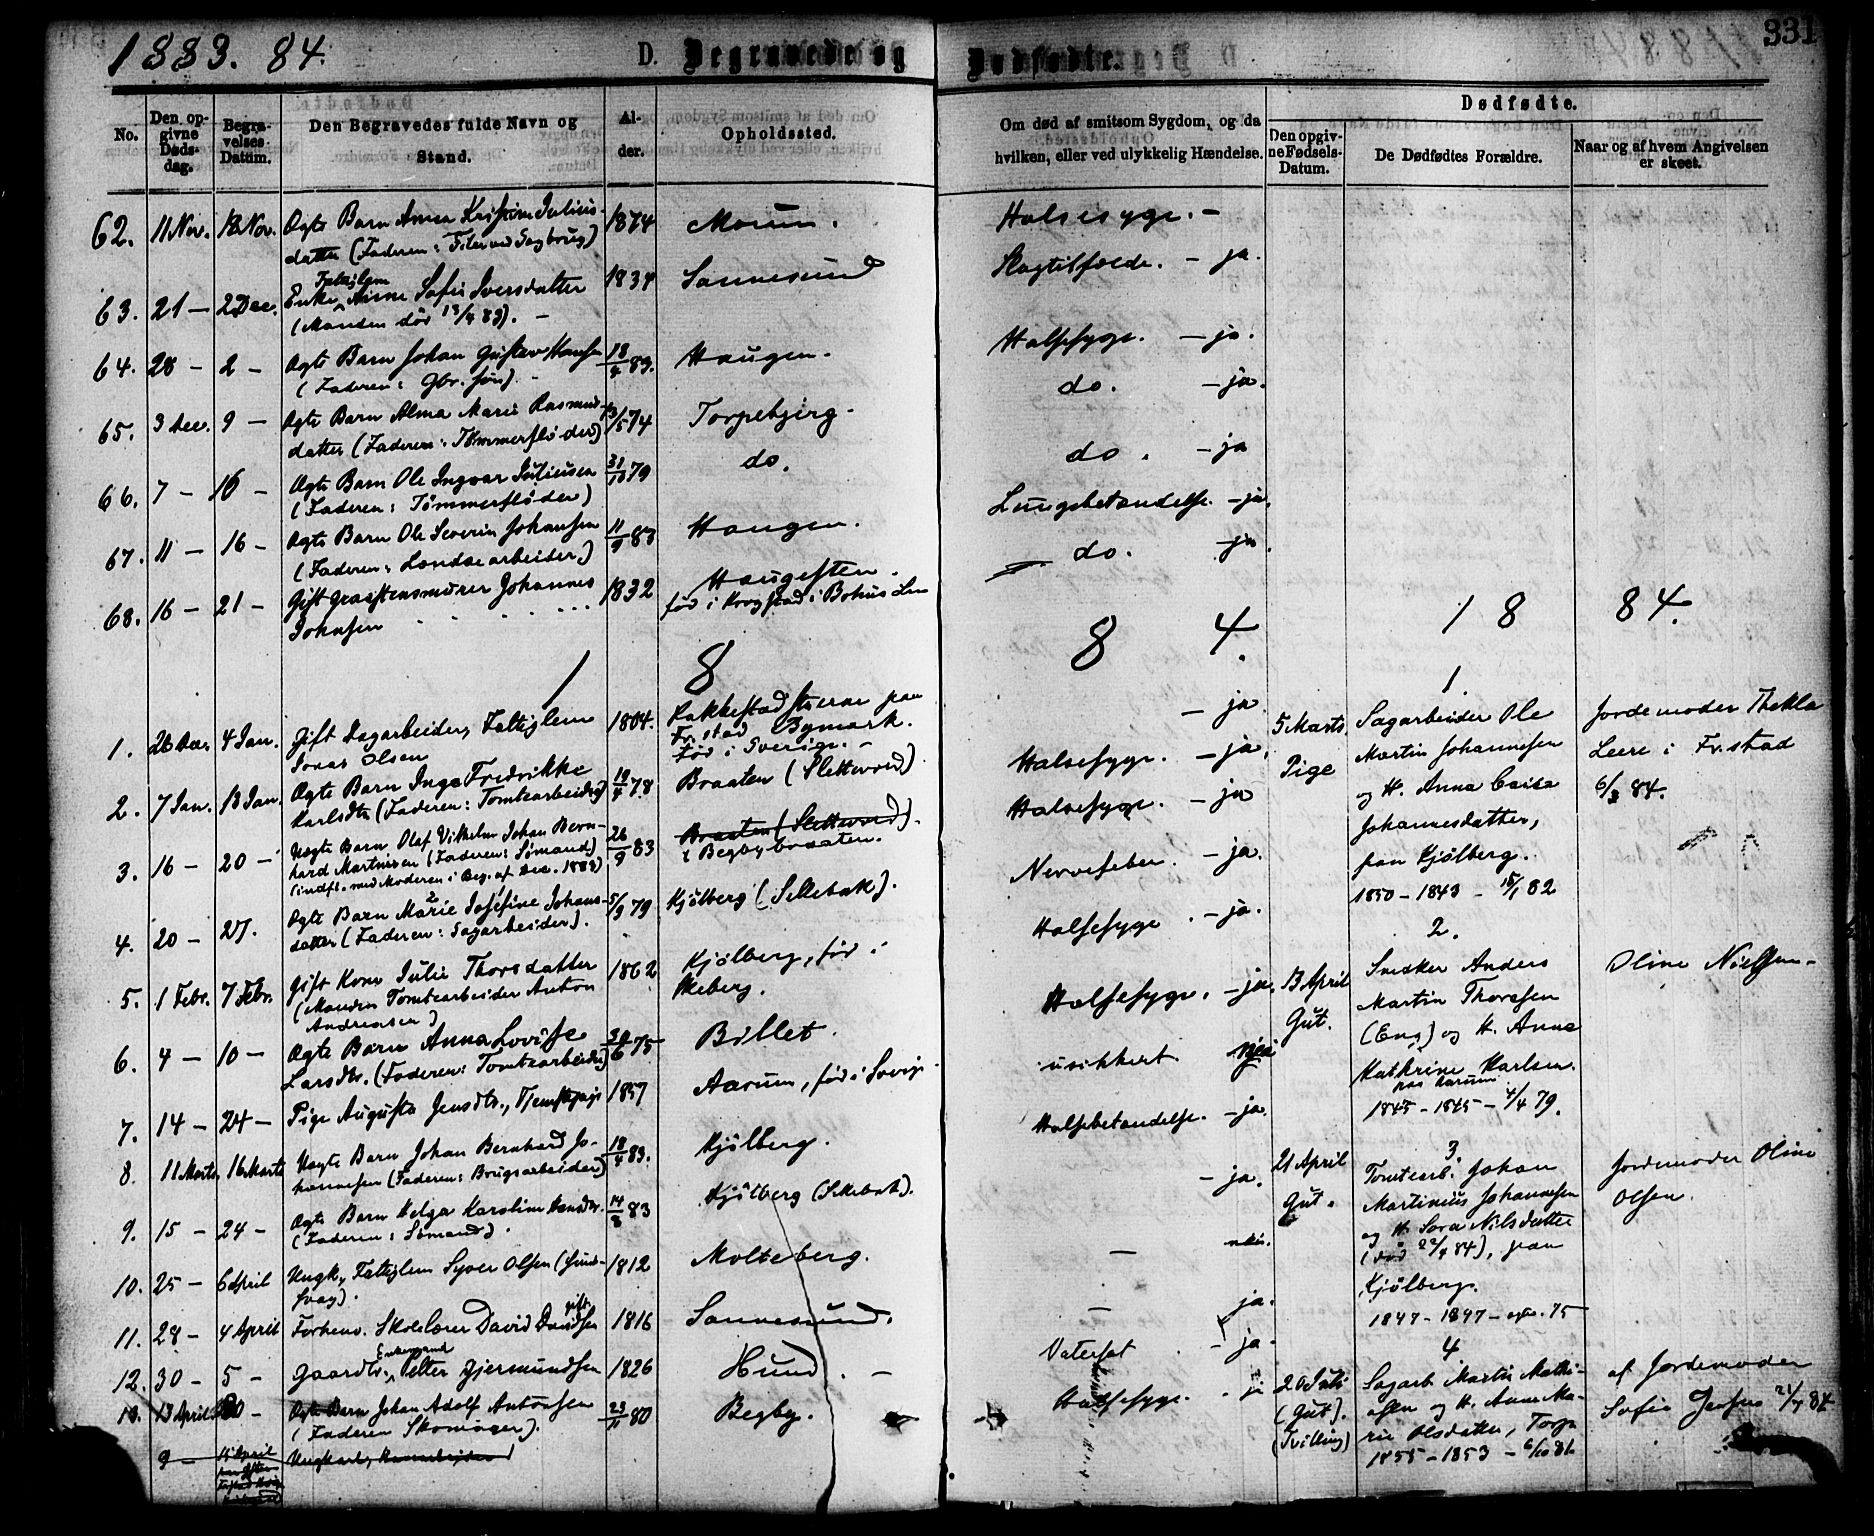 1883. 84.
D. Begravede og Dødfødte.
331
No.
Den opgivne Dødsdag.
Begravelses Datum.
Den Begravedes fulde Navn og Stand.
Alder.
Opholdssted.
Om død af smitsom Sygdom, og da hvilken, eller ved ulykkelig Hændelse.
Dødfødte.
Den opgivne Fødsels-Datum.
De Dødfødtes Forældre.
Naar og af hvem Angivelsen er skeet.
62. 11 Nov. Nov. Ægte Barn Anna Kristine Julius- 1874 Moum. Halsesyge. -
datter (Faderen:
Fattiglem
63. 21 - 2 Dec. Enke Anne Sofie Iversdatter 1834 Sannesund Slagtilfælde. - ja.
(Manden dør 83). -
64. 28 - 2 - Ægte Barn Johan Gustav Hansen 18/4 83. Haugen. Halsesyge. - ja.
(Faderen: Gbr. søn). -
65. 3 Dec. 9 - Ægte Barn Alma Marie Rasmus- /5 74 Torpebjerg. do. - ja.
datter (Faderen: Tømmerfløder)
66. 7 - 16 - Ægte Barn Ole Ingvar Juliussen 31/10 79 do. do. - ja
(Faderen: Tømmerfløder)
67. 11 - 16 - Ægte Barn Ole Severin Johansen 11/9 83 Haugen. Lungebetændelse. - ja.
(Faderen: Landsearbeider)
68. 16 - 21 - Gift Graastensmurer Johannes 1832 Haugesten. do. ja.
Johnsen
født i Krogstad i Bohus Len
1 8 8 4.
1 8 84.
1. 26 Dec. 4 Jan. Gift Dagarbeider, Fattiglem 1804. Rakkestadstuerne paa - ja.
Jonas Olsen
Fr.stad Bymark.
Fød i Sverige. -
2. 7 Jan. 13 Jan. Ægte Barn Inga Fredrikke 10/4 78 Braaten (Slettevold). Halsesyge. - ja.
Karlsdtr (Faderen: Tomtearbeider)
3. 16 - 20 - Uægte Barn Olaf Vilhelm Johan Bern- 26/9 83 Braaten (Slettevold). Halsesyge. - ja
hard Martinsen (Faderen: Sømand)
(indfl. med Moderen i Beg. af Dec. 1883)
i Begbybraaten.
4. 20 - 27. Ægte Barn Marie Josefine Johans- 5/9 79 Kjølberg (Sellebak). Nervefeber. - ja.
datter (Faderen: Sagarbeider).
5. 1 Febr. 7 Febr. Gift Kone Julie Thorsdatter 1862 Kjølberg, fød i Halsesyge. - ja.
(Manden Tomtearbeider Anton
Andreasen)
Skeberg.
6. 4 - 10 - Ægte Barn Anna Lovise /6 75 Billet. Halsesyge. - ja.
Larsdtr. (Faderen: Tomtearbeider)
7. 14 - 24 - Pige Augusta Jensdtr., Tjenstepige 1857 Aarum, fød i usikkert
8. 11 Marts 16 Marts Uægte Barn Johan Bernhard Jo- 18/4 83. Kjølberg. Halsebetændelse. - ja.
hannesen (Faderen: Brugsarbeider)
9. 15 - 24 - Ægte Barn Helga Karoline Hansdtr. 14/8 83 Kjølberg (Sellebak). - ja.
(Faderen: Sømand).
10. 25 - 6 April Ungk., Fattiglem Syver Olsen (Sind- 1812 Molteberg. - nei.
svag).
gift
11. 28 - 4 April Forhenv. Skolelærer David Davidsen 1816 Sannesund. - ja.
Enkemand
12. 30 - 5 - Gaardbr., Petter Gjermundsen 1826 Hund. - Vatersot - ja.
13. 13 April 20 - Ægte Barn Johan Adolf Antonsen 23/11 80 Begby. Halsesyge. - ja
(Faderen Skomager).
9 - April Ungkarl,
1.
5 Marts. Pige
Sagarbeider Ole
Martin Johannesen
og H. Anna Caisa
Johannesdatter,
paa Kjølberg.
1850 - 1843 - 15/1 82
Jordemoder Thekla
Leere i Fr.stad
6/3 84.
2.
13 April Gut.
Snedker Anders
Martin Thoresen
(Eng) og H. Anna
Kathrine Karlsen.
paa Aarum
1845 - 1845 - 4/4 79.
Oline Nielsen
3.
21 April Gut.
Tomtearb. Johan
Martinius Johannesen
og H. Sara Nilsdatter
(død 22/4 84), paa
Kjølberg.
1847 - 1847 - 75
Jordemoder Oline
Olsen.
4
20 Juli (Gut). (Tvilling)
Sagarb. Martin Mathi-
asen og H. Anne Ma-
rie Olsdatter, Torp
1855 - 1853 - 6/10 81
af Jordemoder
Sofie Jensen 21/7 84